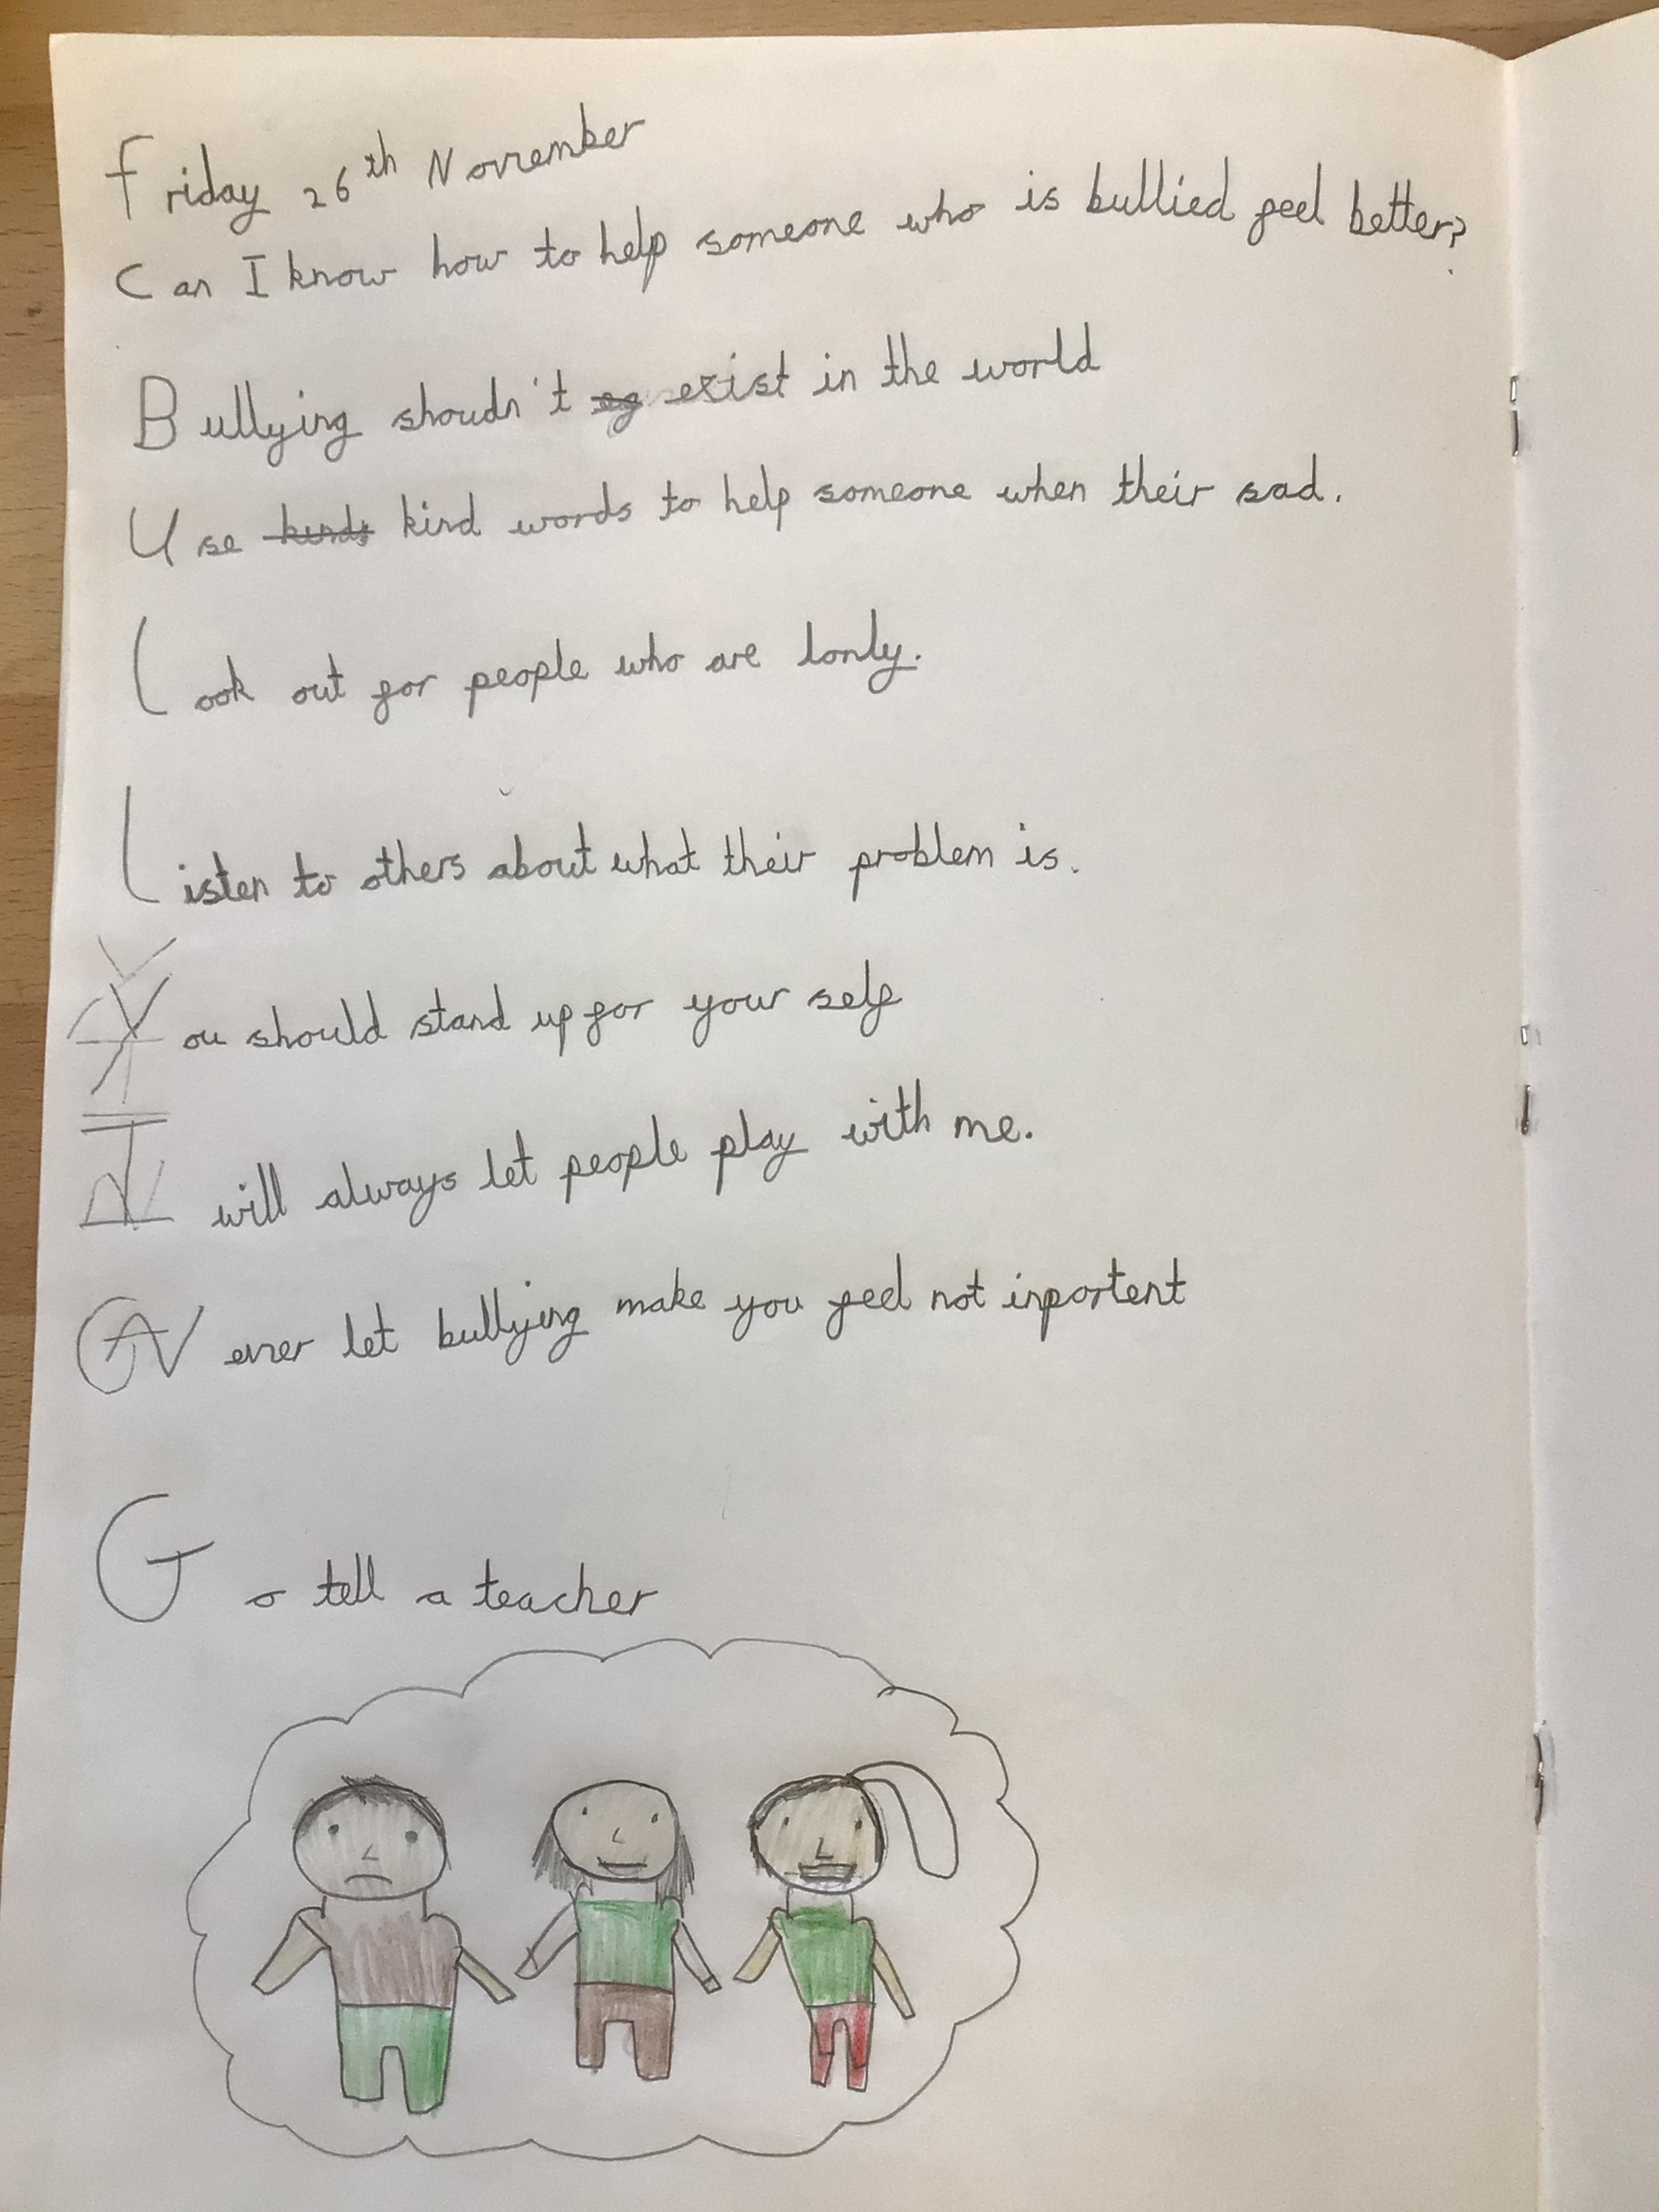 Friday 26th November
Can I know how to help someone who is bullied feel better?
Bullying shoudn't eg exist in the world
Use kinds kind words to help someone when their sad.
Look out for people who are lonly.
Listen to others about what their problem is.
You should stand up for your self
I will always let people play with me.
Never let bullying make you feel not inportent
Go tell a teacher